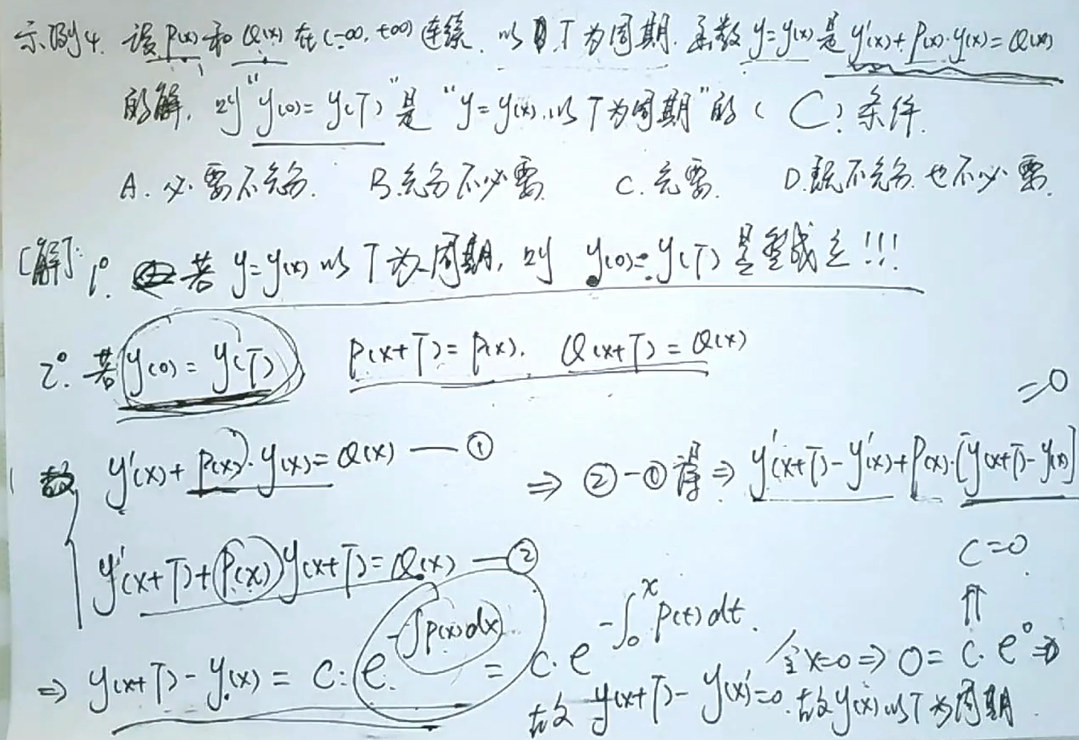 示例4. 设P(x)和Q(x)在(-∞,+∞)连续, 以T为周期. 函数y=y(x)是y'(x)+P(x)·y(x)=Q(x)
的解, 则"y(0)=y(T)"是"y=y(x)以T为周期"的( C )条件.
A. 必要不充分. B.充分不必要. C.充要. D.既不充分也不必要.
[解]: 1°. 若y=y(x)以T为周期, 则 y(0)=y(T)是成立!!!
2°. 若y(0)=y(T) P(x+T)=P(x). Q(x+T)=Q(x)
故 y'(x)+P(x)·y(x)=Q(x) — ① ⇒ ②-①得⇒ y'(x+T)-y'(x)+P(x)·[y(x+T)-y(x)] =0
y'(x+T)+P(x)y(x+T)=Q(x) — ②
⇒ y(x+T)-y(x)= C·e^{-∫P(x)dx} = C·e^{-∫_0^x P(t)dt}. 令x=0⇒0=C·e^0⇒ C=0
故 y(x+T)-y(x)=0. 故y(x)以T为周期